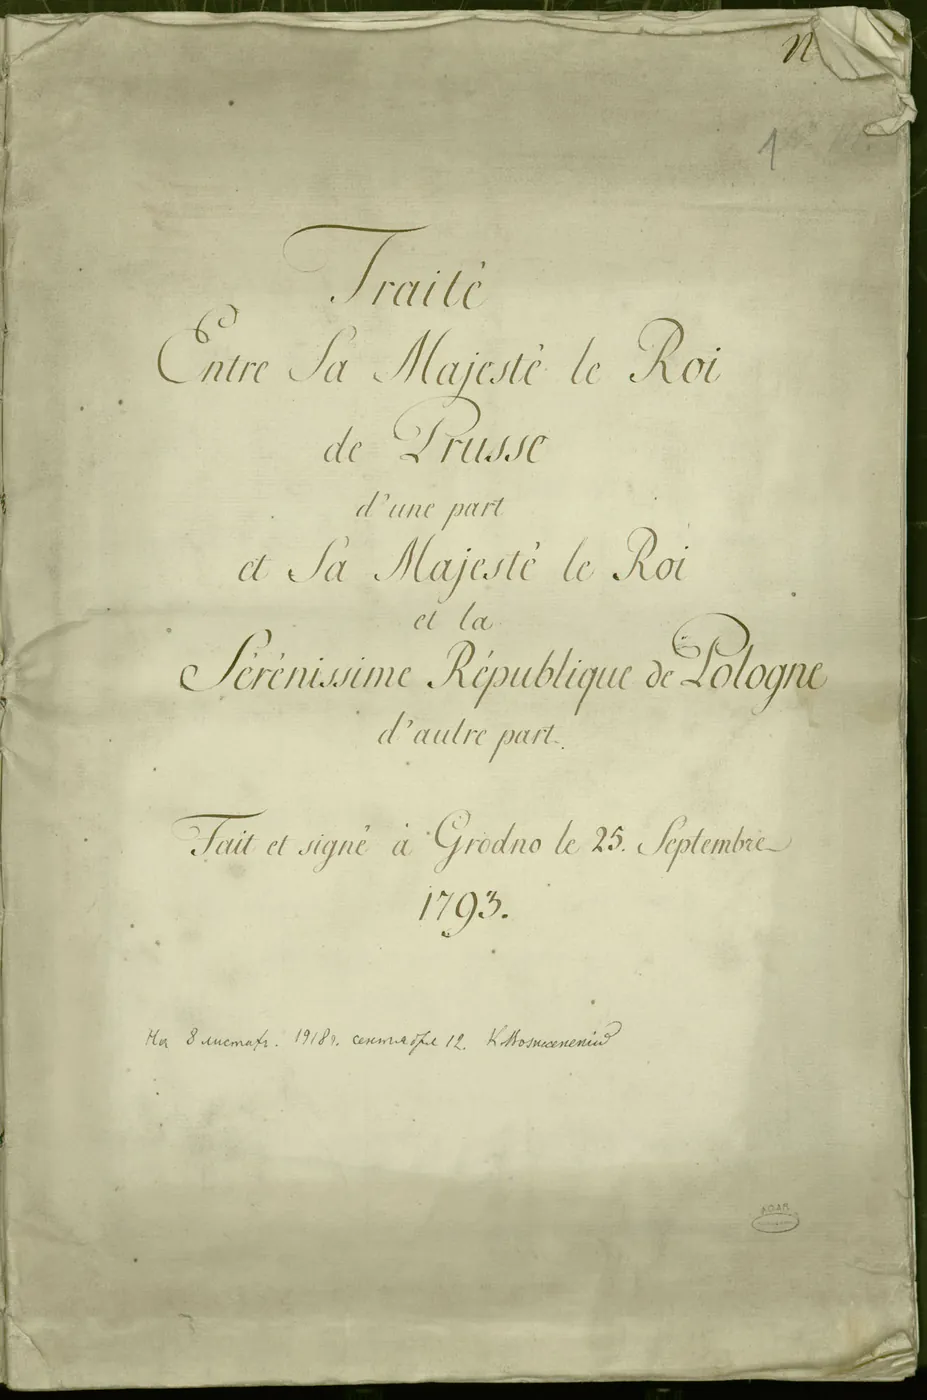 n
1
Traité
Entre Sa Majesté le Roi
de Prusse
d'une part
et Sa Majesté le Roi
et la
Sérénissime République de Pologne
d'autre part.
Fait et signé à Grodno le 25. Septembre
1793.
На 8 листах. 1918 г. сентября 12.
AGAD